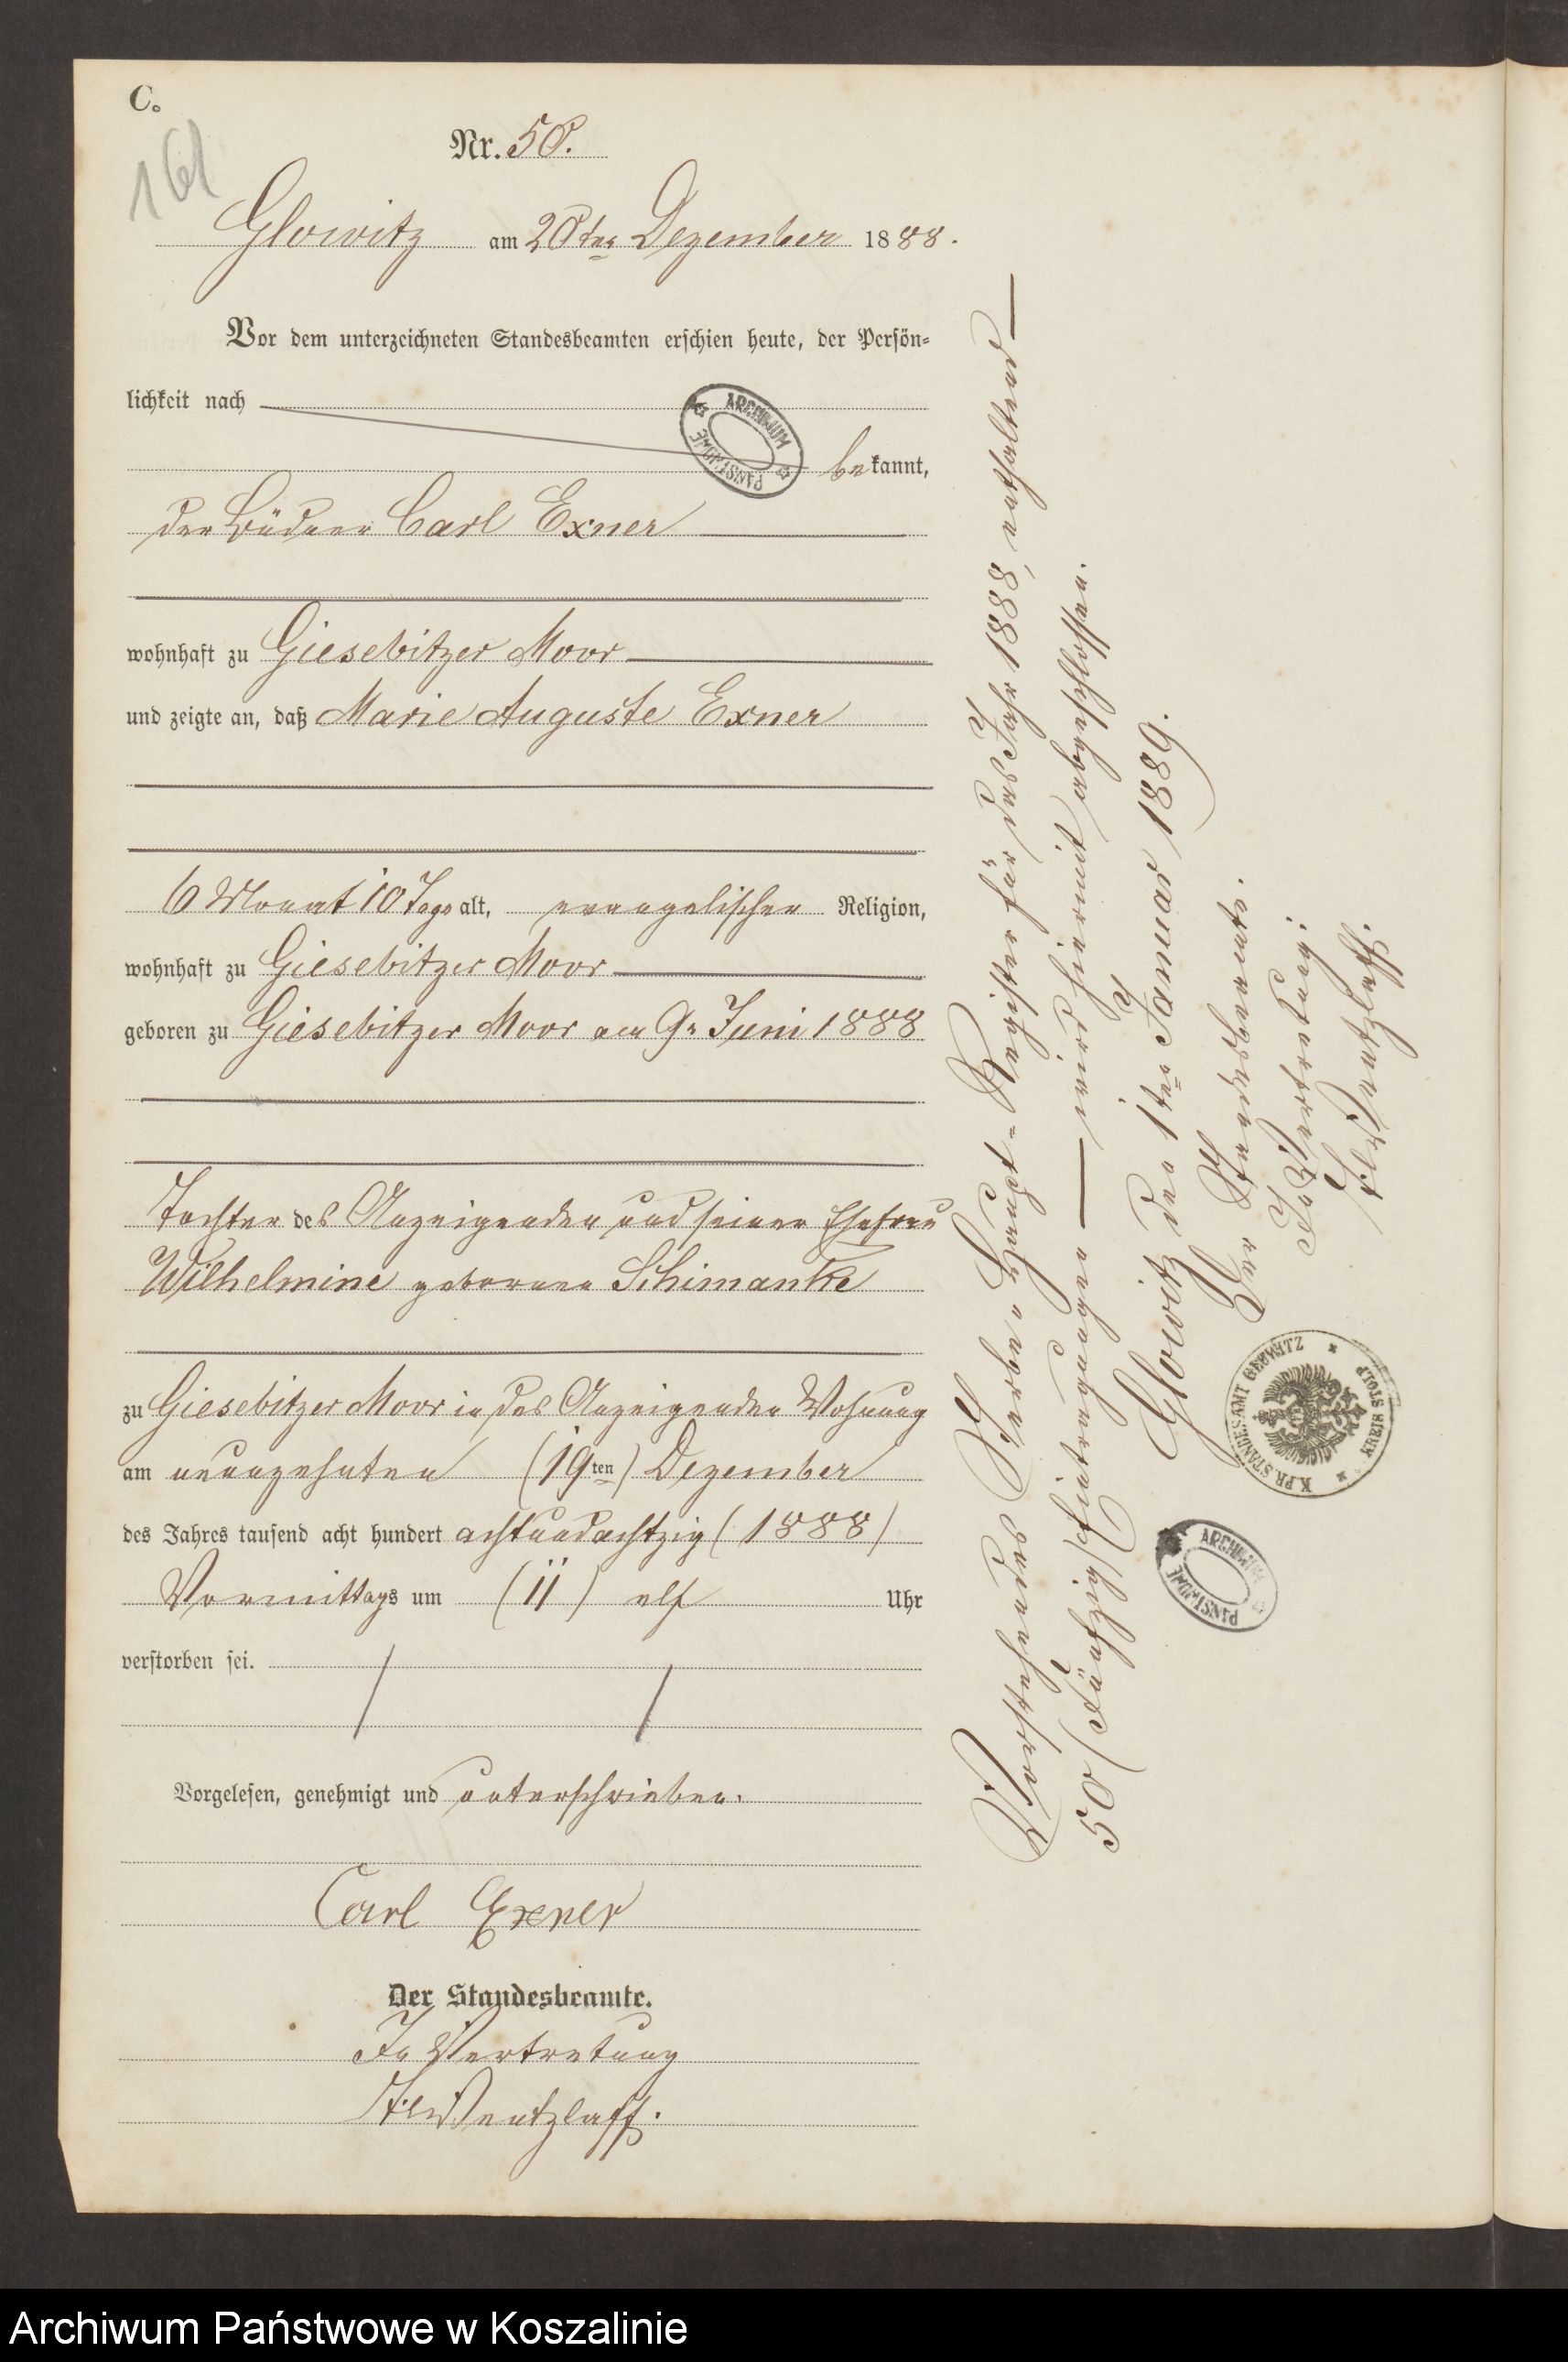 C.
161
Nr. 50.
Glowitz am 20ten Dezember 1888.
Vor dem unterzeichneten Standesbeamten erschien heute, der Persön-
lichkeit nach
bekannt,
der Büdner Carl Exner
wohnhaft zu Giesebitzer Moor
und zeigte an, daß Marie Auguste Exner
6 Monat 10 Tage alt, evangelischer Religion,
wohnhaft zu Giesebitzer Moor
geboren zu Giesebitzer Moor am 9n Juni 1888
Tochter des Anzeigenden und seiner Ehefrau
Wilhelmine geborenen Schimanke
zu Giesebitzer Moor in des Anzeigenden Wohnung
am neunzehnten (19ten) Dezember
des Jahres tausend acht hundert achtundachtzig (1888)
Vormittags um (11) elf Uhr
verstorben sei.
Vorgelesen, genehmigt und unterschrieben.
Carl Exner
Der Standesbeamte.
In Vertretung
Wentzlaff.
Vorstehendes Sterbe Haupt-Register für das Jahr 1888, enthaltend
50 (Fünfzig) Eintragungen wird hiermit abgeschlossen.
Glowitz den 1ten Januar 1889.
Der Standesbeamte.
In Vertretung:
Wentzlaff.
K. PR. STANDESAMT GLOWITZ
KREIS STOLP
ARCHIWUM PAŃSTWOWE
ARCHIWUM PAŃSTWOWE
Archiwum Państwowe w Koszalinie